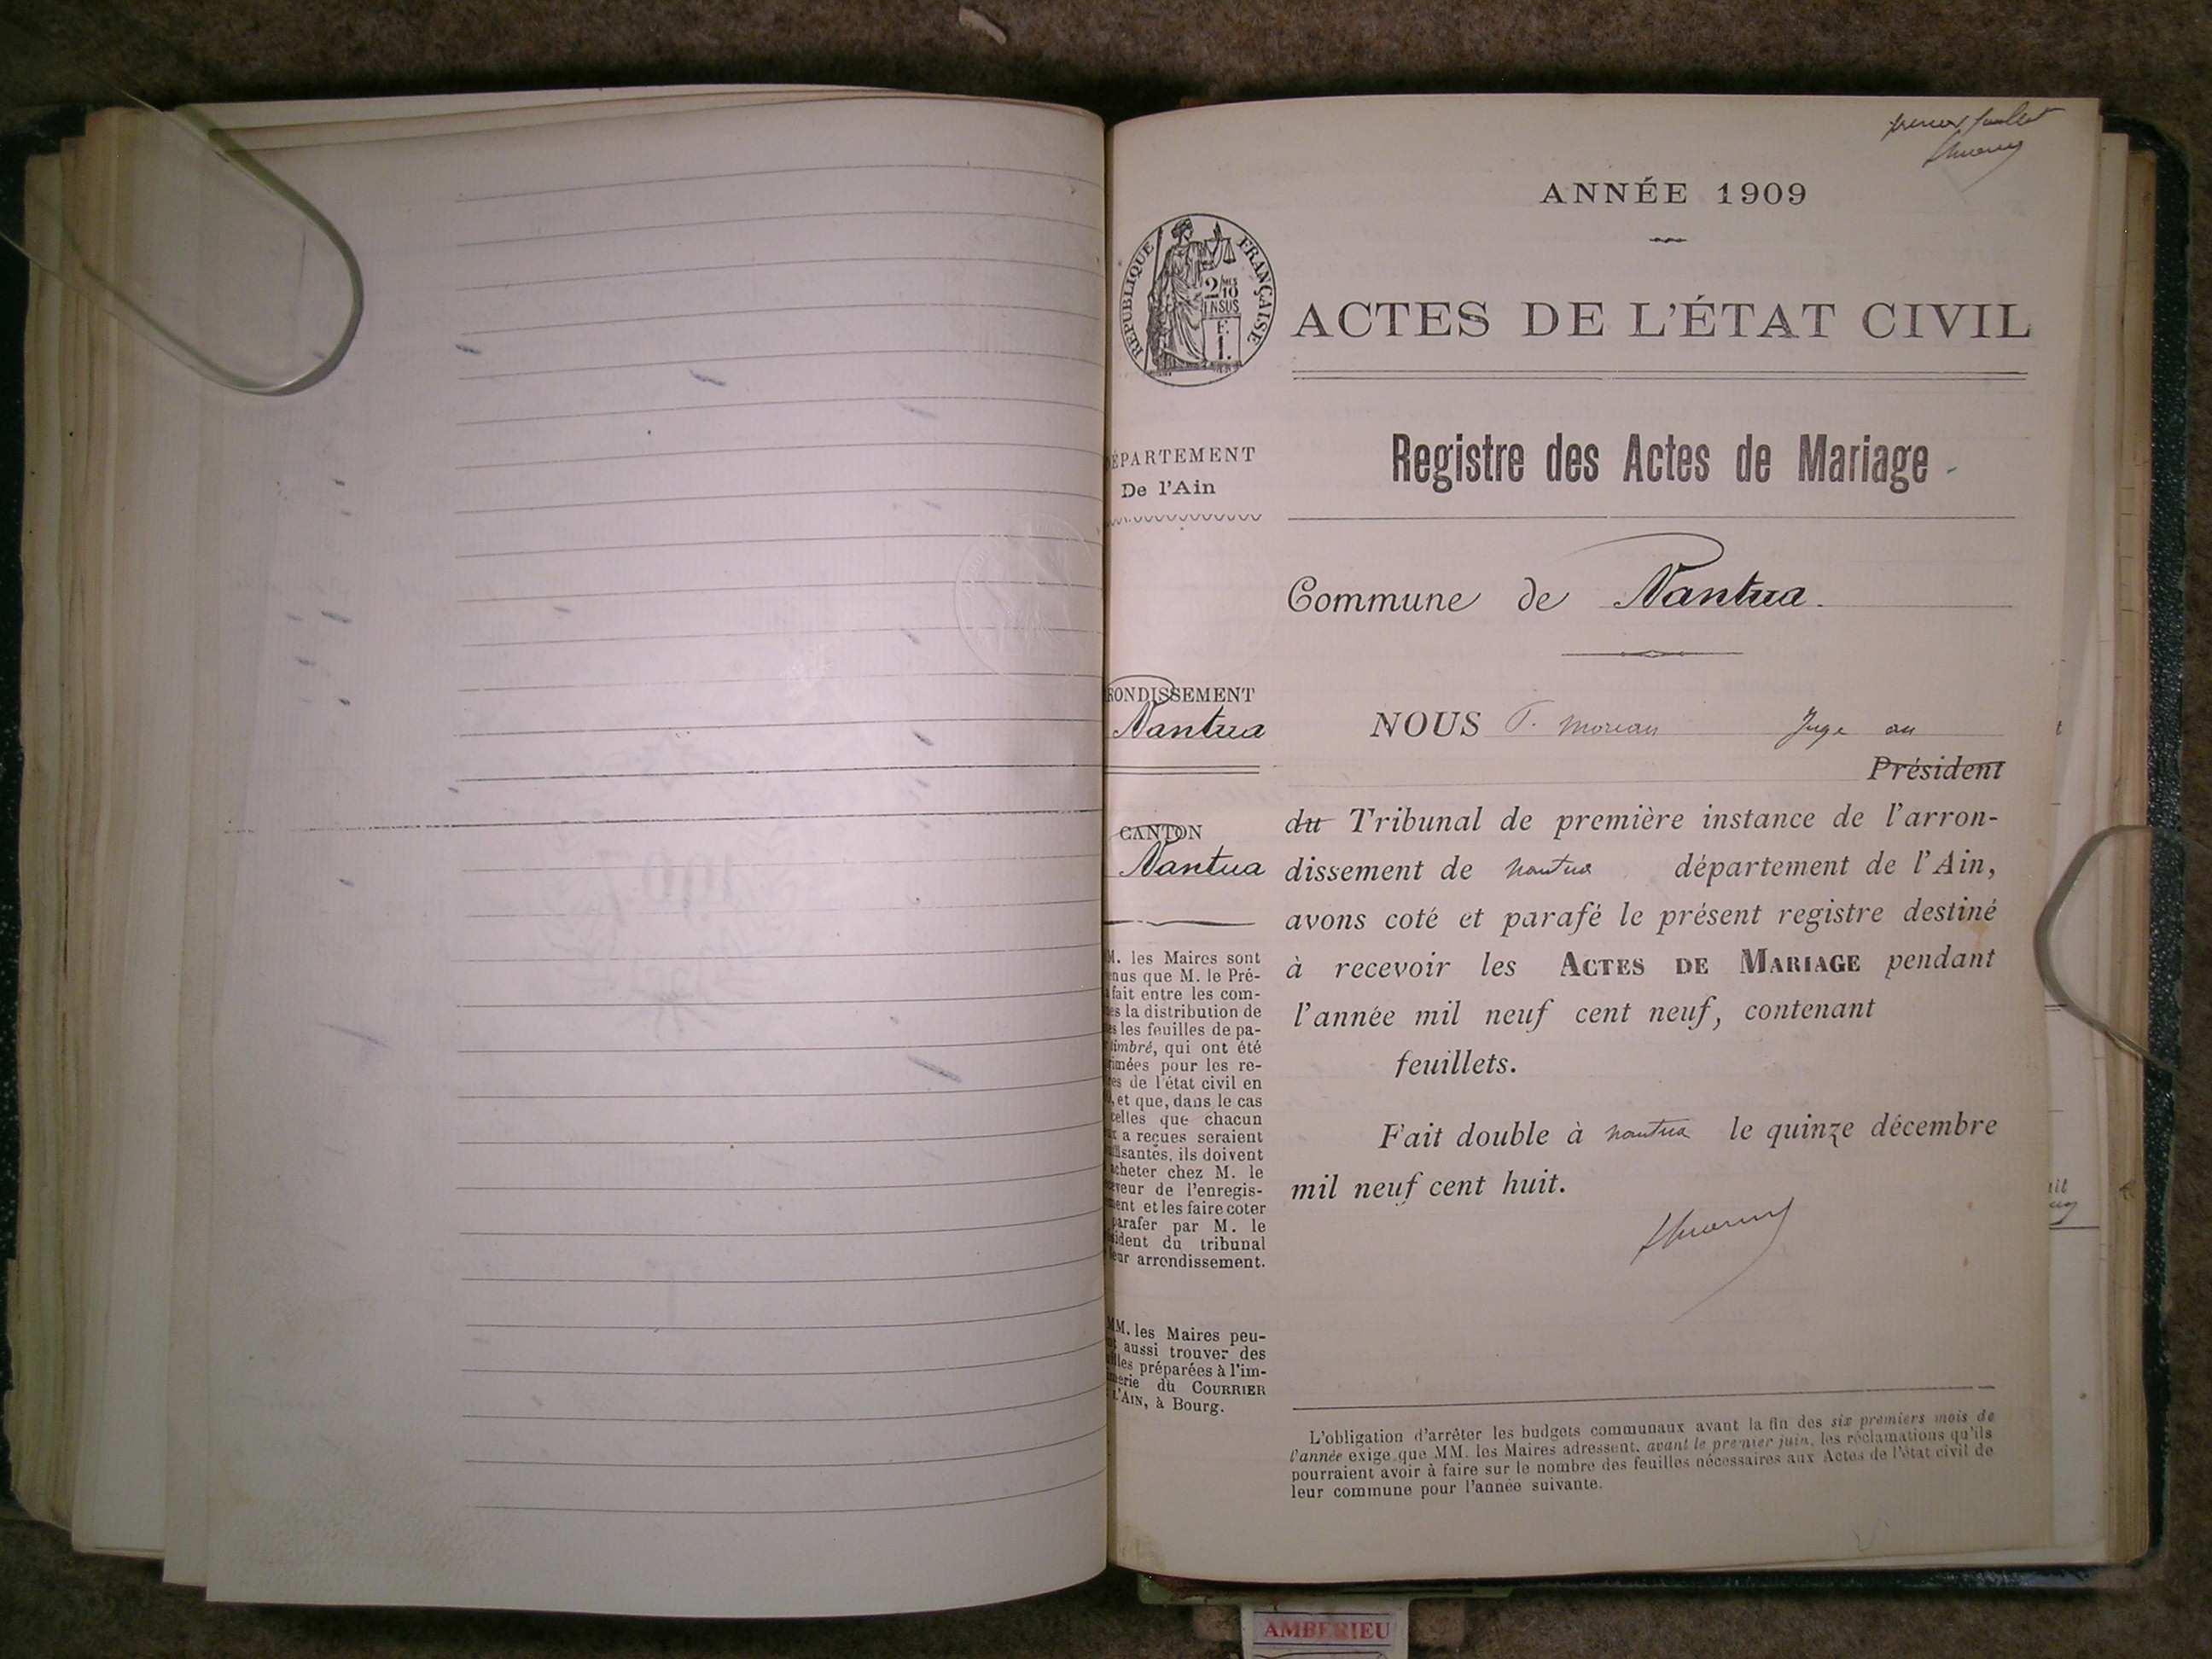 ANNÉE 1909
RÉPUBLIQUE FRANÇAISE
2/10
EN SUS
F.
1.
ACTES DE L'ÉTAT CIVIL
Registre des Actes de Mariage
Commune de Nantua.
NOUS P. Moreau Juge au
Président
du Tribunal de première instance de l'arron-
dissement de Nantua département de l'Ain,
avons coté et parafé le présent registre destiné
à recevoir les ACTES DE MARIAGE pendant
l'année mil neuf cent neuf, contenant
feuillets.
Fait double à Nantua le quinze décembre
mil neuf cent huit.
ÉPARTEMENT
De l'Ain
RONDISSEMENT
Nantua
CANTON
Nantua
M. les Maires sont
enus que M. le Pré-
fait entre les com-
es la distribution de
es les feuilles de pa-
timbré, qui ont été
rimées pour les re-
res de l'état civil en
, et que, dans le cas
celles que chacun
ux a reçues seraient
ffisantes, ils doivent
acheter chez M. le
ceveur de l'enregis-
ment et les faire coter
parafer par M. le
sident du tribunal
leur arrondissement.
MM. les Maires peu-
aussi trouver des
illes préparées à l'im-
merie du COURRIER
L'AIN, à Bourg.
L'obligation d'arrêter les budgets communaux avant la fin des six premiers mois de
l'année exige que MM. les Maires adressent, avant le premier juin, les réclamations qu'ils
pourraient avoir à faire sur le nombre des feuilles nécessaires aux Actes de l'état civil de
leur commune pour l'année suivante.
AMBERIEU